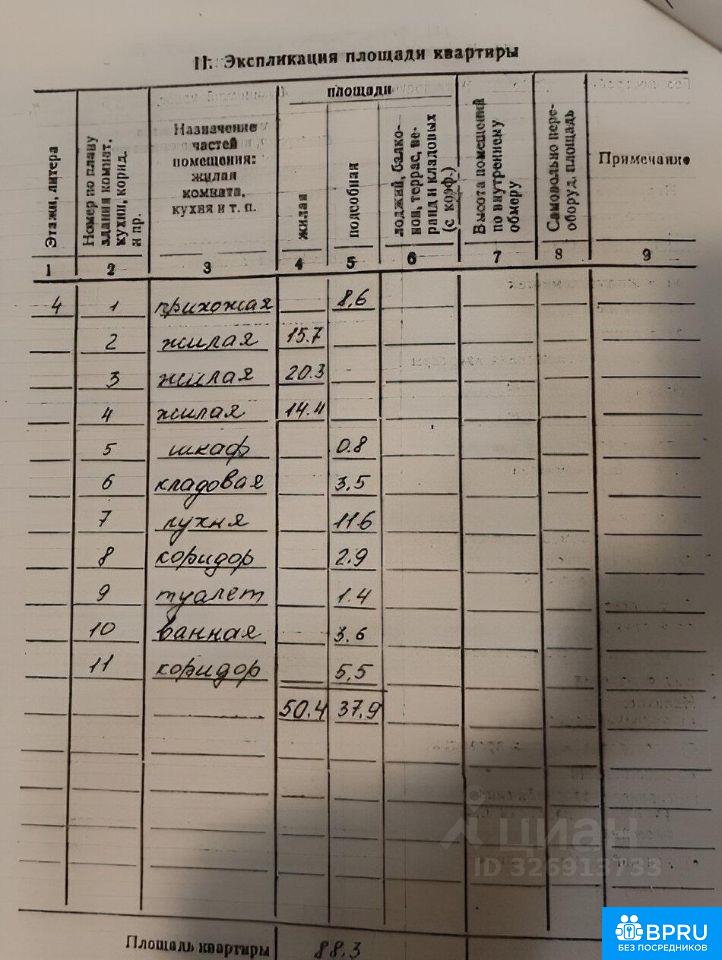 II. Экспликация площади квартиры
Этажи, литера
Номер по плану здания комнат, кухни, корид. и пр.
Назначение частей помещения: жилая комната, кухня и т. п.
площади
жилая
подсобная
лоджий, балконов, террас, веранд и кладовых (с коэф.)
Высота помещений по внутреннему обмеру
Самовольно переоборуд. площадь
Примечание
1 2 3 4 5 6 7 8 9
4 1 прихожая 8,6
2 жилая 15.7
3 жилая 20.3
4 жилая 14.4
5 шкаф 0.8
6 кладовая 3,5
7 кухня 11.6
8 коридор 2.9
9 туалет 1.4
10 ванная 3.6
11 коридор 5,5
50.4 37,9
Площадь квартиры 88.3
циан
ID 326913733
BPRU
БЕЗ ПОСРЕДНИКОВ